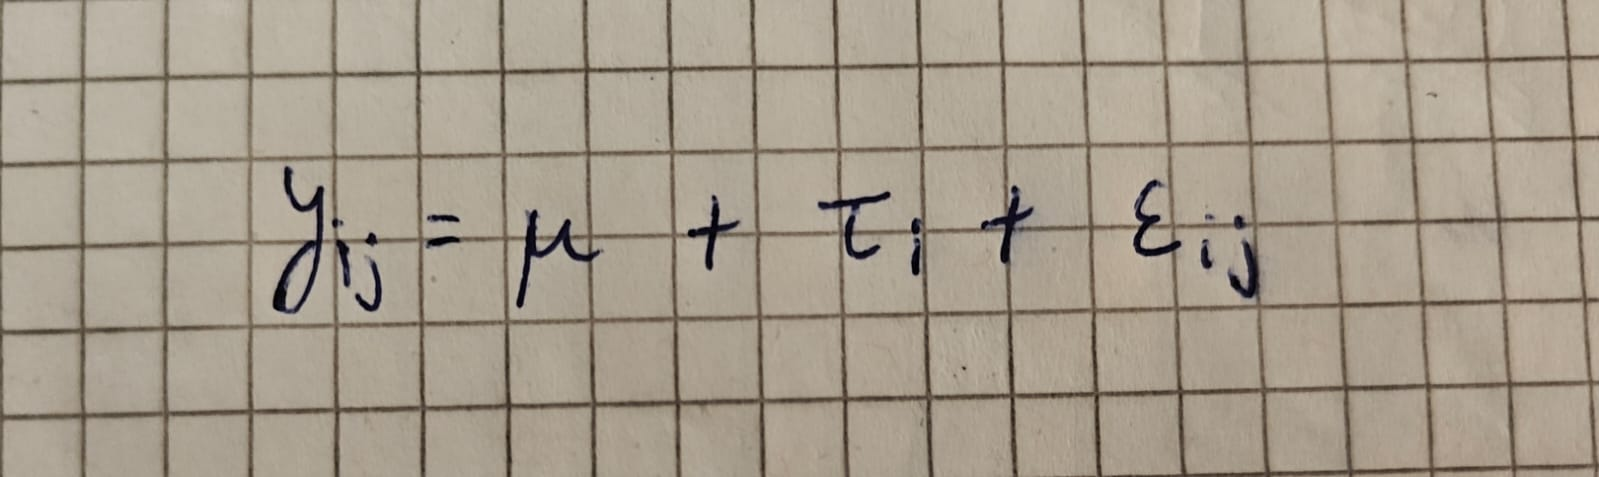 y_ij = μ + τ_i + ε_ij